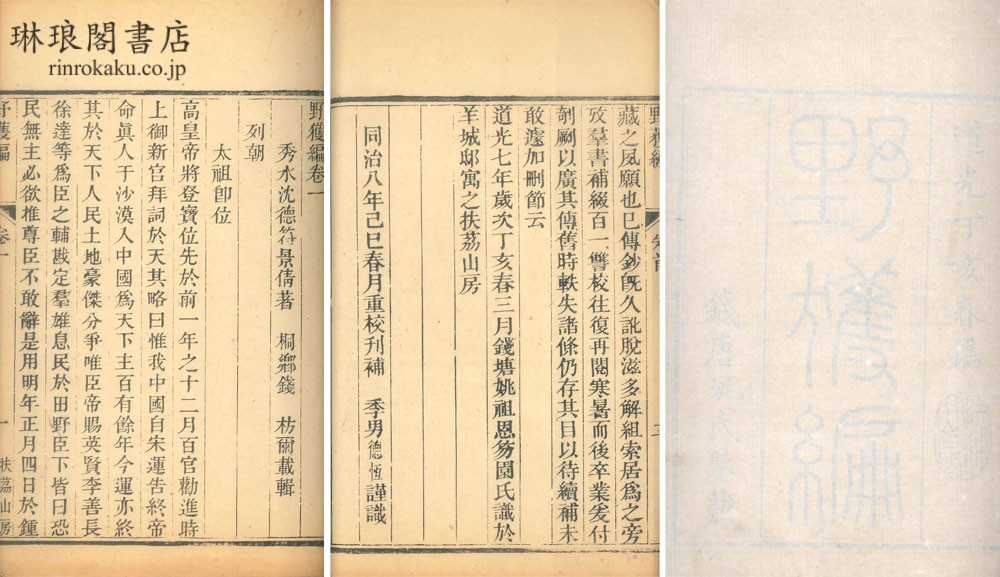 琳琅閣書店
rinrokaku.co.jp
野獲編卷一
秀水沈德符景倩著 桐鄉錢 枋爾載輯
列朝
太祖卽位
高皇帝將登寶位先於前一年之十二月百官勸進時
上御新宮拜詞於天其略曰惟我中國自宋運告終帝
命眞人于沙漠入中國爲天下主百有餘年今運亦終
其於天下人民土地豪傑分爭唯臣帝賜英賢李善長
徐達等爲臣之輔戡定羣雄息民於田野臣下皆曰恐
民無主必欲推尊臣不敢辭是用明年正月四日於鍾
野獲編 卷一 一 扶荔山房
野獲編 卷首 二
藏之夙願也已傳鈔旣久訛脫滋多解組索居爲之旁
攷羣書補綴百一讐校往復再閱寒暑而後卒業爰付
剞劂以廣其傳舊時軼失諸條仍存其目以待續補未
敢遽加刪節云
道光七年歲次丁亥春三月錢塘姚祖恩笏園氏識於
羊城邸寓之扶荔山房
同治八年己巳春月重校刊補 季男德恆謹識
野獲編